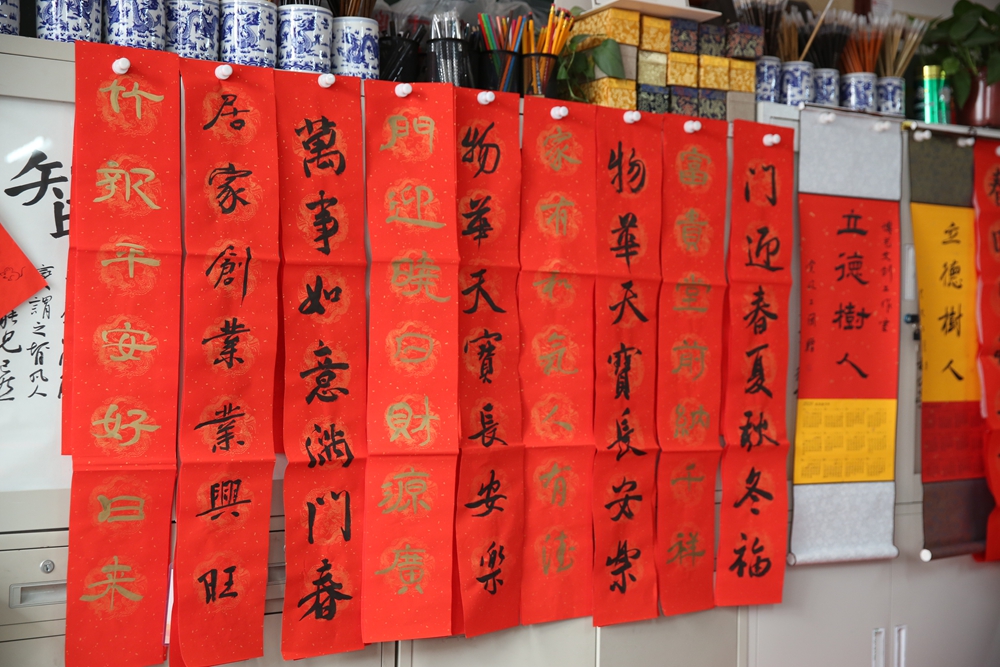 竹报平安好日来
居家創業業興旺
萬事如意满門春
門迎曉日財源廣
物華天寶長安樂
家有和人有
物華天寶長安樂
富貴堂前納千祥
门迎春夏秋冬福
立德樹人
立德樹人